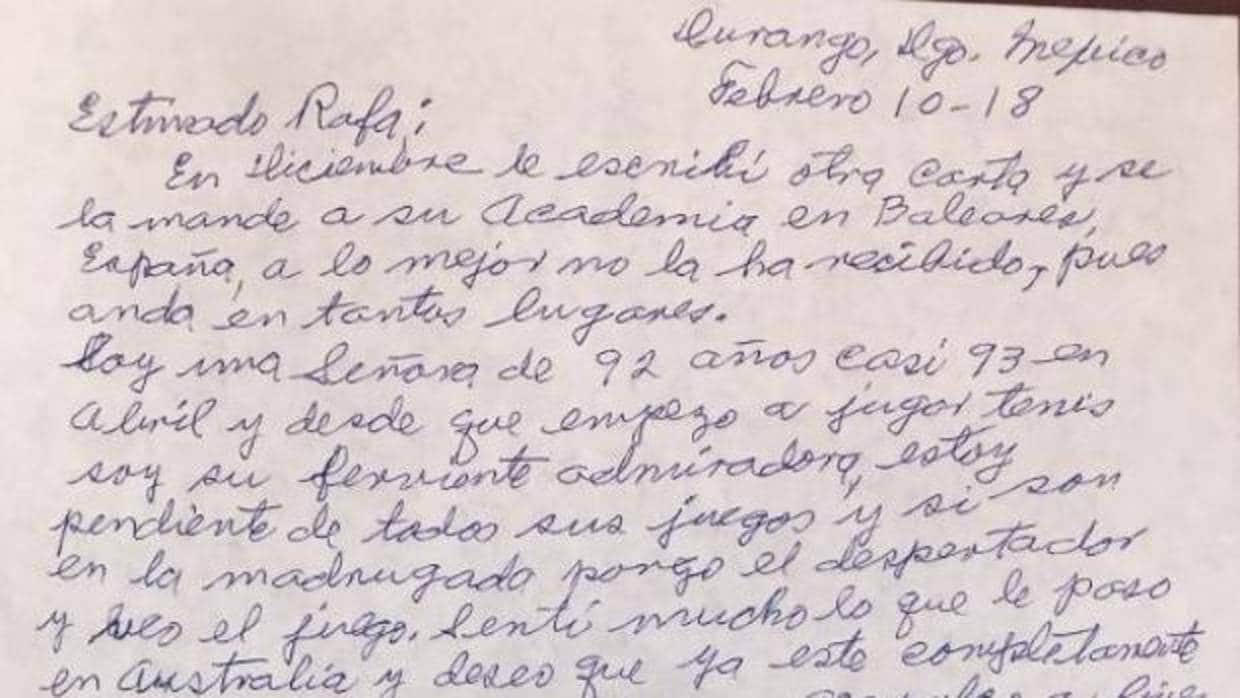 Durango, Dgo. Mexico
Febrero 10-18
Estimado Rafa;
En Diciembre le escribí otra carta y se
la mande a su Academia en Baleares,
España, a lo mejor no la ha recibido, pues
anda en tantos lugares.
Soy una Señora de 92 años casi 93 en
Abril y desde que empezo a jugar tenis
soy su ferviente admiradora, estoy
pendiente de todos sus juegos y si son
en la madrugada pongo el despertador
y veo el juego. Sentí mucho lo que le paso
en Australia y deseo que ya este completamente